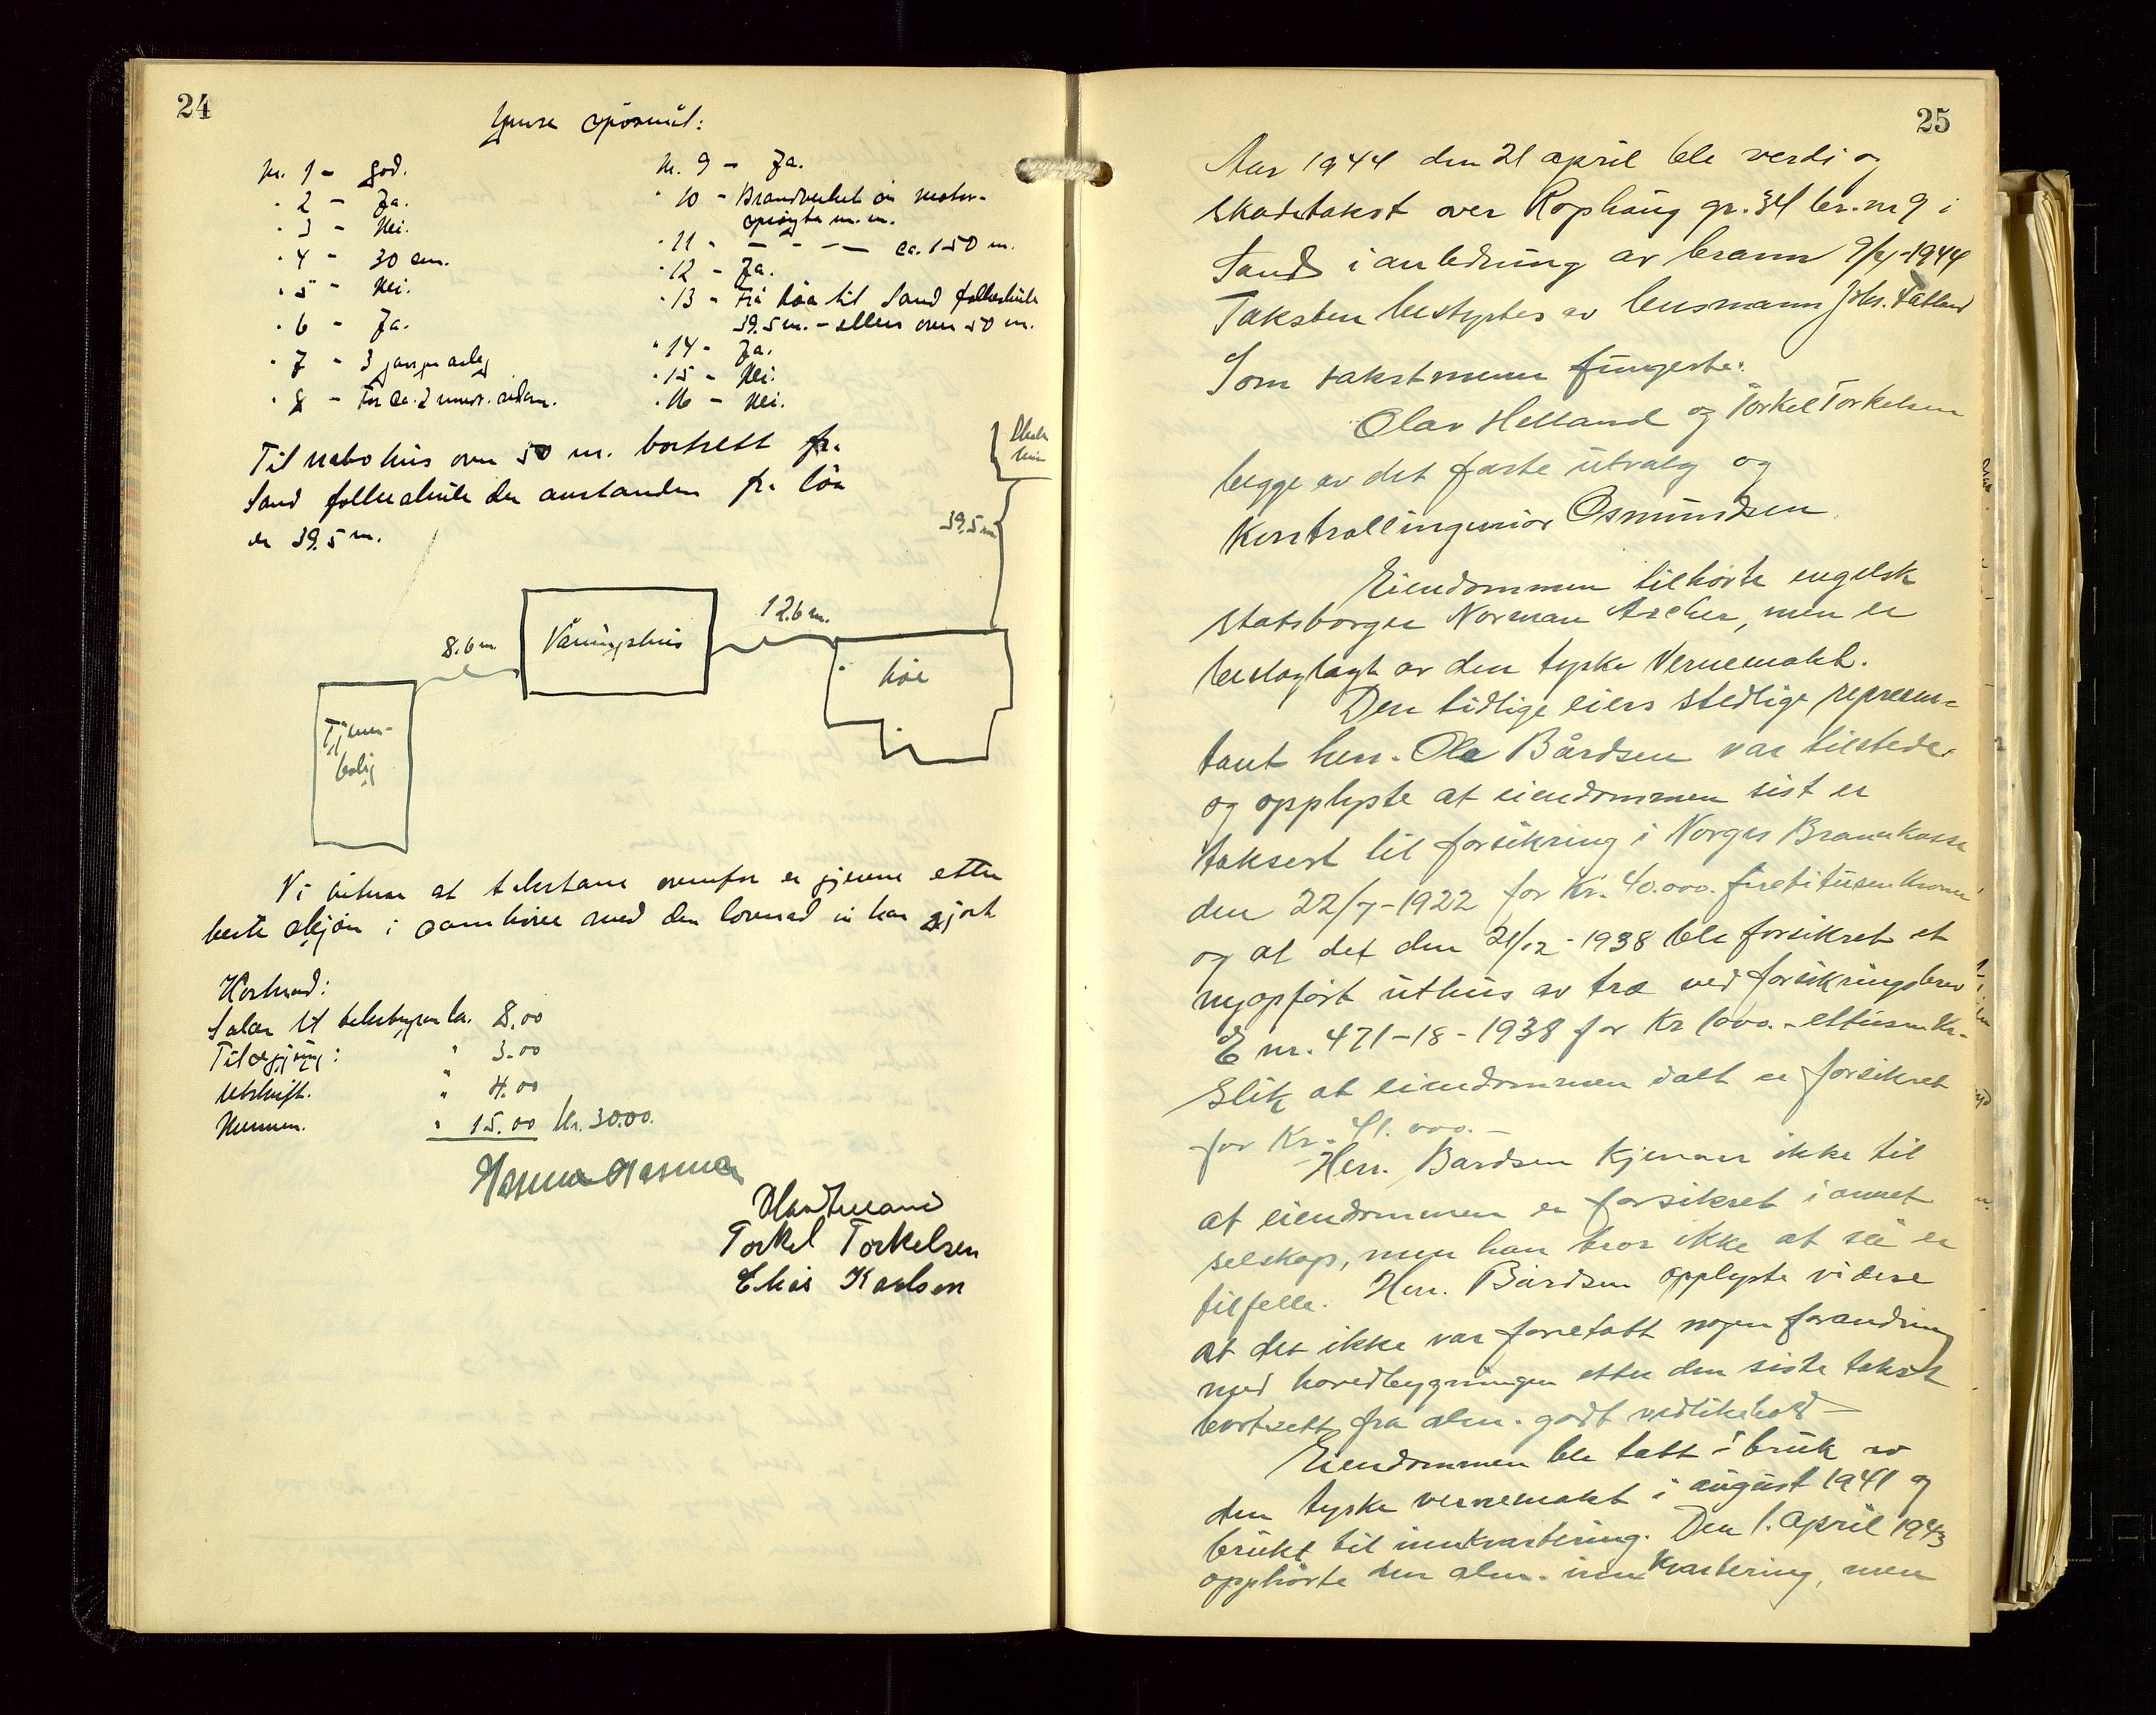 24
Ymse spörsmål:
Nr. 1 - god.
" 2 - Ja.
" 3 - Nei.
" 4 - 30 cm.
" 5 - Nei.
" 6 - Ja.
" 7 - 3 årleg
" 8 - For ca. 2 sidan.
Nr. 9 - Ja.
" 10 - Brandverket än motor-
spröyta m.m.
" 11 - — - — ca. 150 m.
" 12 - Ja.
" 13 - Frå löa til Sand folkeskule
39.5 m. - ellers over 50 m.
" 14 - Ja.
" 15 - Nei.
" 16 - Nei.
Til nabohus over 50 m. bortsett fr.
Sand folkeskule der avstanden fr. löa
er 39.5 m.
39.5 m
8.6 m.
Våningshus
12.6 m.
löe
Tjener-
bolig
Vi vitnar at takstane ovanfor er gjevne etter
beste skjön i samhöve med den lovnad vi har gjort
Kostnad:
Salær til takstsyn kr. 8.00
Tilsegjing: " 3.00
Utskrift. " 4.00
" 15.00 Kr. 30.00.
Torkel Torkelsen
Elias Karlsen
25
Aar 1944 den 21 april ble verdi og
skadetakst over Rophaug gr. 34 br.nr 9 i
Sand i anledning av brann 9/4-1944
Taksten bestyrtes av lensmann Johs. Fatland
Som takstmenn fungerte:
Olav Helland og Torkel Torkelsen
begge av det faste utvalg og
Kontrollingeniör Osmundsen
Eiendommen tilhörte engelsk
statsborger Norman Archer, men er
beslaglagt av den tyske Vernemakt.
Den tidlige eiers stedlige represen=
tant herr. Ole Bårdsen var tilstede
og opplyste at eiendommen sist er
taksert til forsikring i Norges Brannkasse
den 22/7-1922 for Kr. 40.000. firetitusen kroner
og at det den 21/12-1938 ble forsikret et
nyopfört uthus av træ ved forsikringsbrev
E nr. 471-18-1938 for Kr 1000.- ettusen Kr.-
Slik at eiendommen ialt er forsikret
for Kr. 41.000.-
Herr. Bårdsen kjenner ikke til
at eiendommen er forsikret i annet
selskap, men han tror ikke at så er
tilfelle. Herr. Bårdsen opplyste videre
at det ikke var foretatt nogen forandring
med hovedbygningen etter den siste takst
bortsett fra alm. godt vedlikehold -
Eiendommen ble tatt i bruk av
den tyske vernemakt i august 1941 og
brukt til innkvartering. Den 1. april 1943
opphörte den alm. innkvartering, men